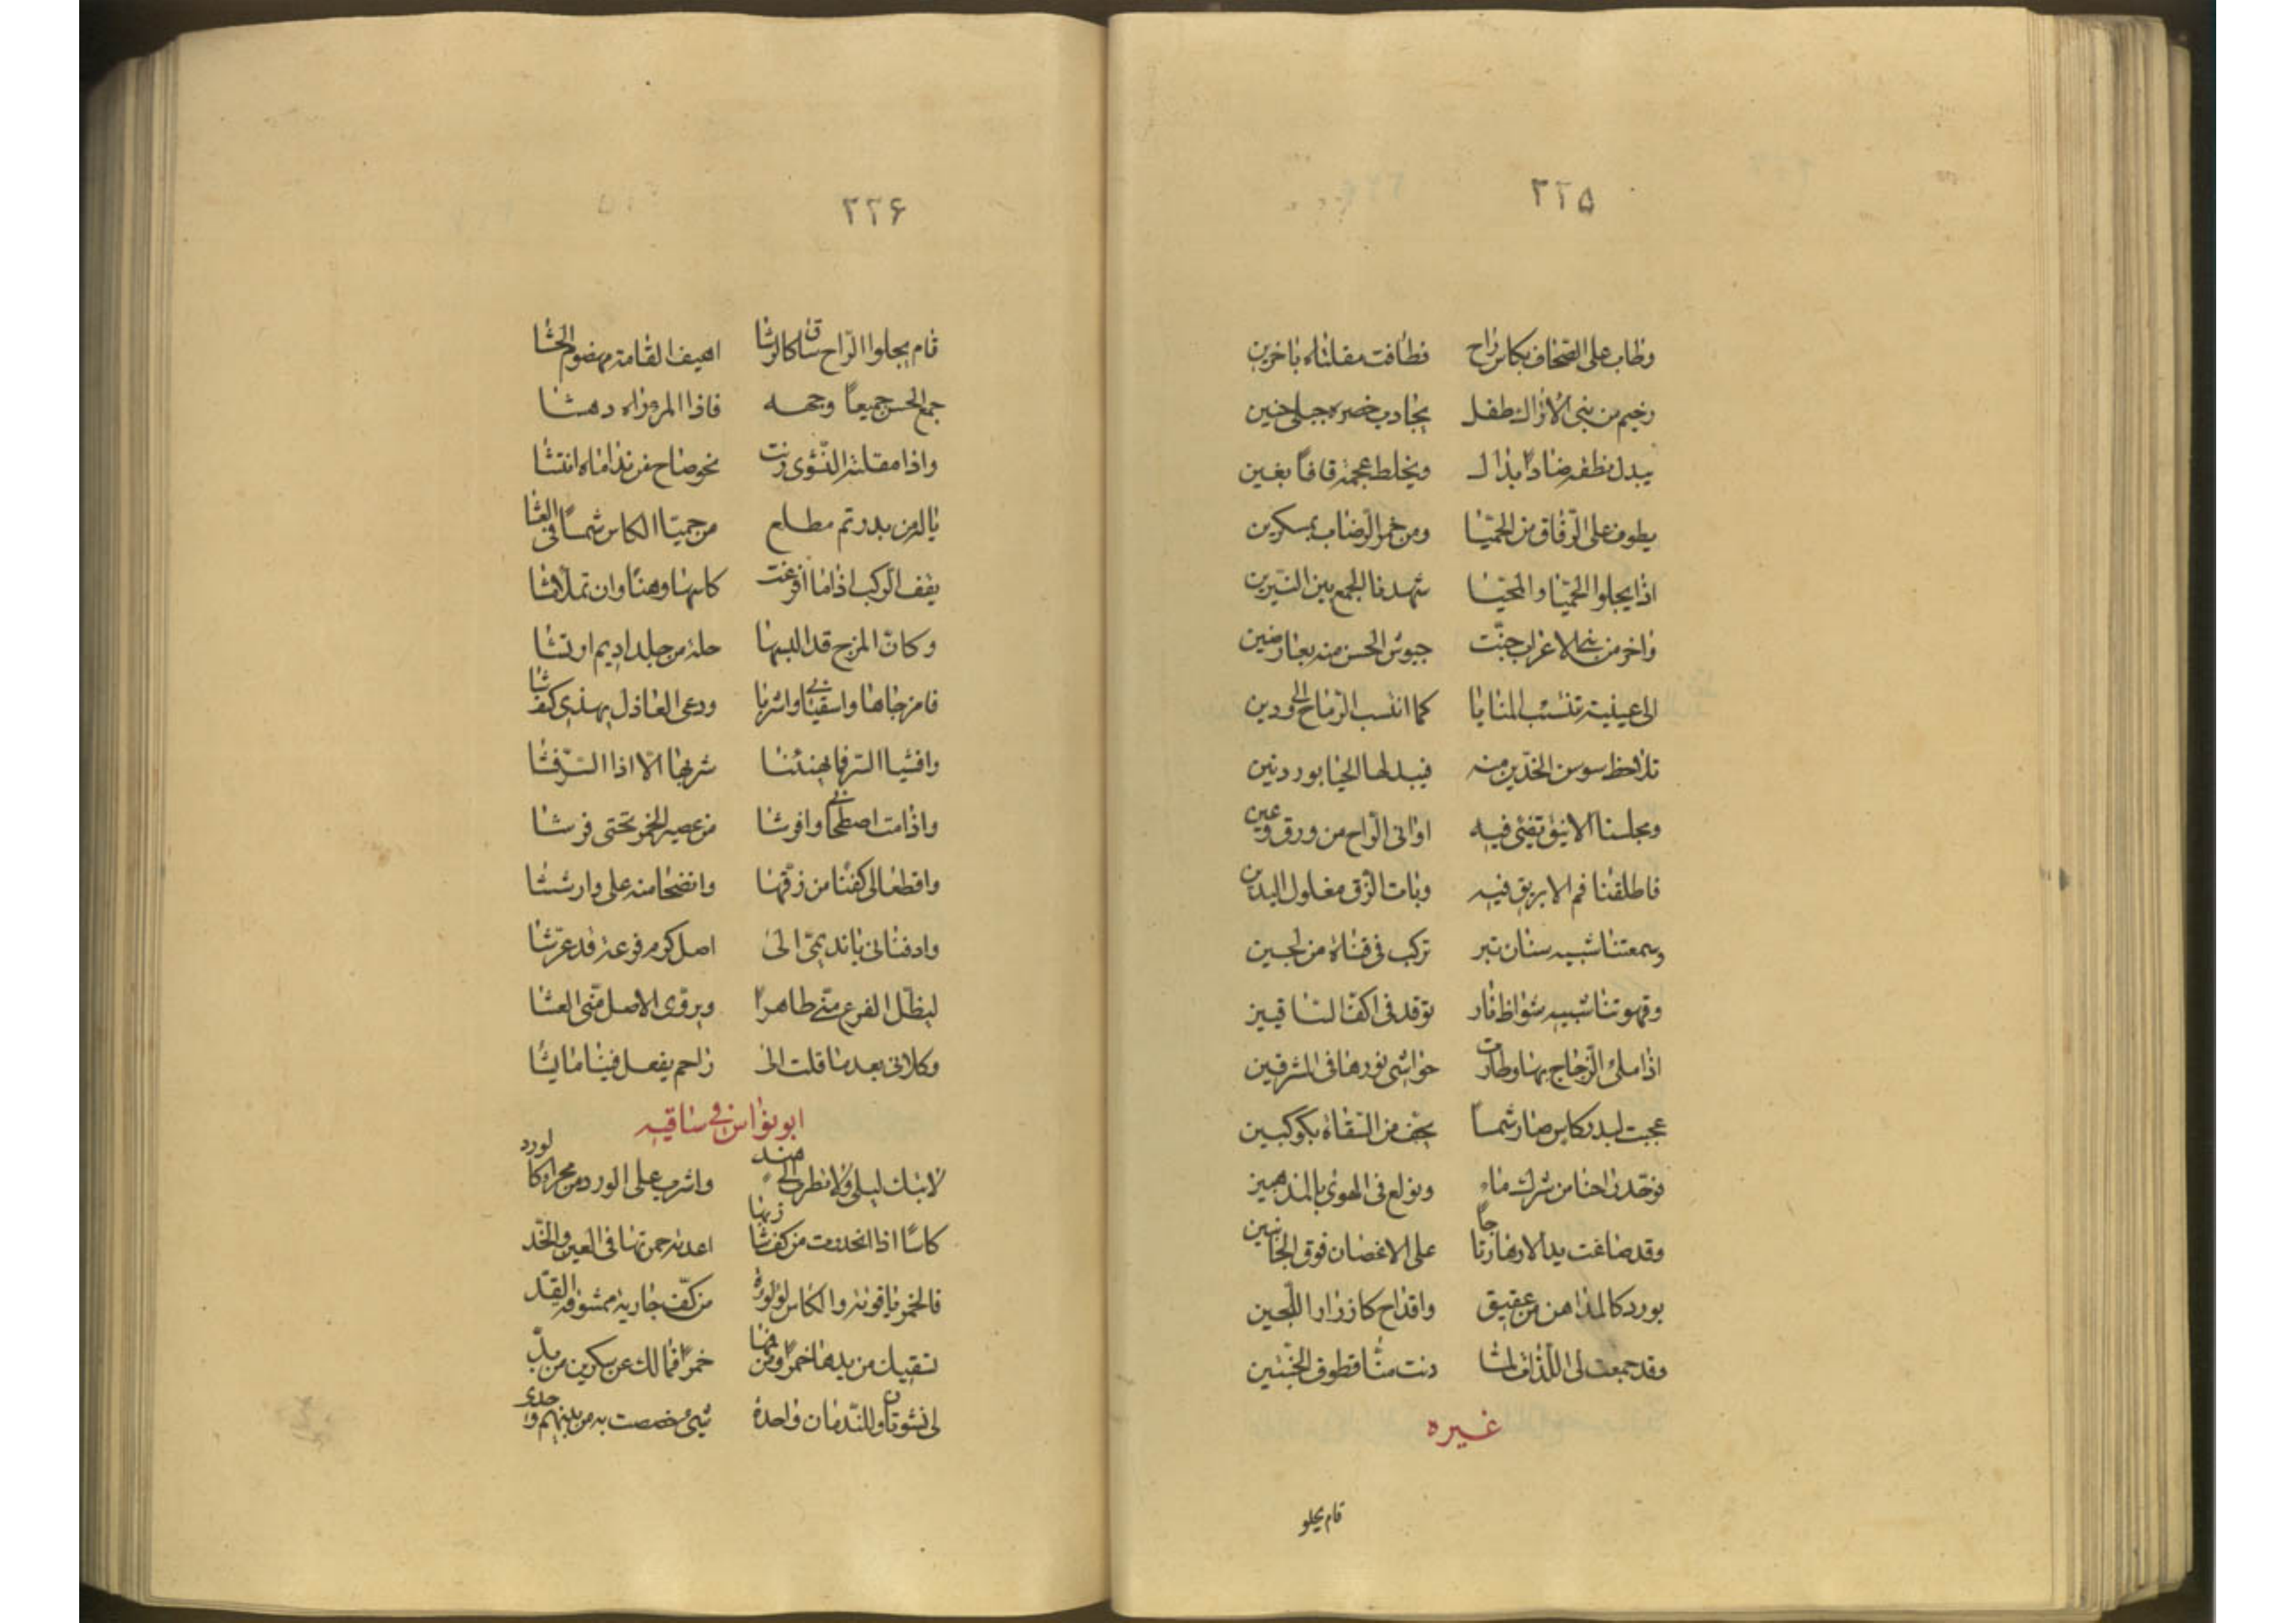 ۲۲۵
وطاب على الصحاف بكاس راح فطافت مقلتاه باخرين
رخيم من بنى الاتراك طفل يجاذب خصره جبلى حنين
يبدل نطقه ضادا بدال ويخلط عجمة قافا بغين
يطوف على الرّفاق من الحميّا ومن خمر الرضاب بمسكرين
اذا يجلوا الحميّا والمحيّا شهدنا الجمع بين النيّرين
واخر من بنى الاعراب حبّت جيوش الحسن منه بعارضين
الى عينيه تنتسب المنايا كما انتسب الرّماح الى ردين
تلاحظ سوسن الخدّين منه فيبدلها الحيا بوردتين
ومجلسنا الانيق تضئ فيه اوانى الرّاح من ورق وعين
فاطلقنا فم الابريق فيه وبات الزّق مغلول اليدين
وشمعتنا شبيه سنان تبر تركب فى قناة من لجين
وقهوتنا شبيه شواظ نار توقد فى اكفّ الساقيين
اذا ملئ الزّجاج بها وطارت حواشى نورها فى المشرقين
عجبت لبدر كاس صار شمسا يحف من السّقاة بكوكبين
نوحّد راحنا من شرك ماء ونولع فى الهوى بالمذهبين
وقد صاغت يد الازهار تاجا على الاغصان فوق الجانبين
بورد كالمداهن من عقيق واقداح كازرار اللّجين
وقد جمعت لى اللّذات لمّا دنت منّا قطوف الجنّتين
غيره
قام يجلو
۲۲۶
قام يجلوا الرّاح ساق كالرشا اهيف القامة مهضوم الحشا
جمع الحسن جميعا وجهه فاذا المرء راه دهشا
واذا مقلته النّشوى رنت نحو صاح من نداماه انتشا
يا له من بدر تم مطلع من حميّا الكاس شمسا فى العشا
يقف الركب اذا ما افرغت كاسها وهنا وان تملا مشا
وكانّ المزج قد البسها حلة من جلد اديم ارقشا
فامزجاها واسقيانى واشربا ودعى العاذل يهذى كيف شا
وافشيا السر فما يهنئنا شربها الّا اذا السّر فشا
واذا مت اصطحانى وافرشا من عصير الخمر تحتى فرشا
واقطعا لى كفنا من زقّها وانضحا منه على وارششا
وادفنانى يا نديمىّ الى اصل كرم فرعه قد عرّشا
ليظلّ الفرع منّى طاهرا ويروّى الاصل منّى العشا
وكلانى بعد ما قلت الى راحم يفعل فينا ما يشا
ابو نواس فى ساقيه
لا تبك ليلى ولا تطرب الى هند واشرب على الورد من حمراء كالورد
كاسا اذا انحدرت من كف شاربها اعدته حمرتها فى العين والخّد
فالخمر ياقوتة والكاس لؤلؤة من كفّ جارية ممشوقة القدّ
تسقيك من يدها خمرا ومن فمها خمرا فمالك عن سكرين من بدّ
لى نشوتان وللنّدمان واحدة شىء خصصت به من بينهم وحدى